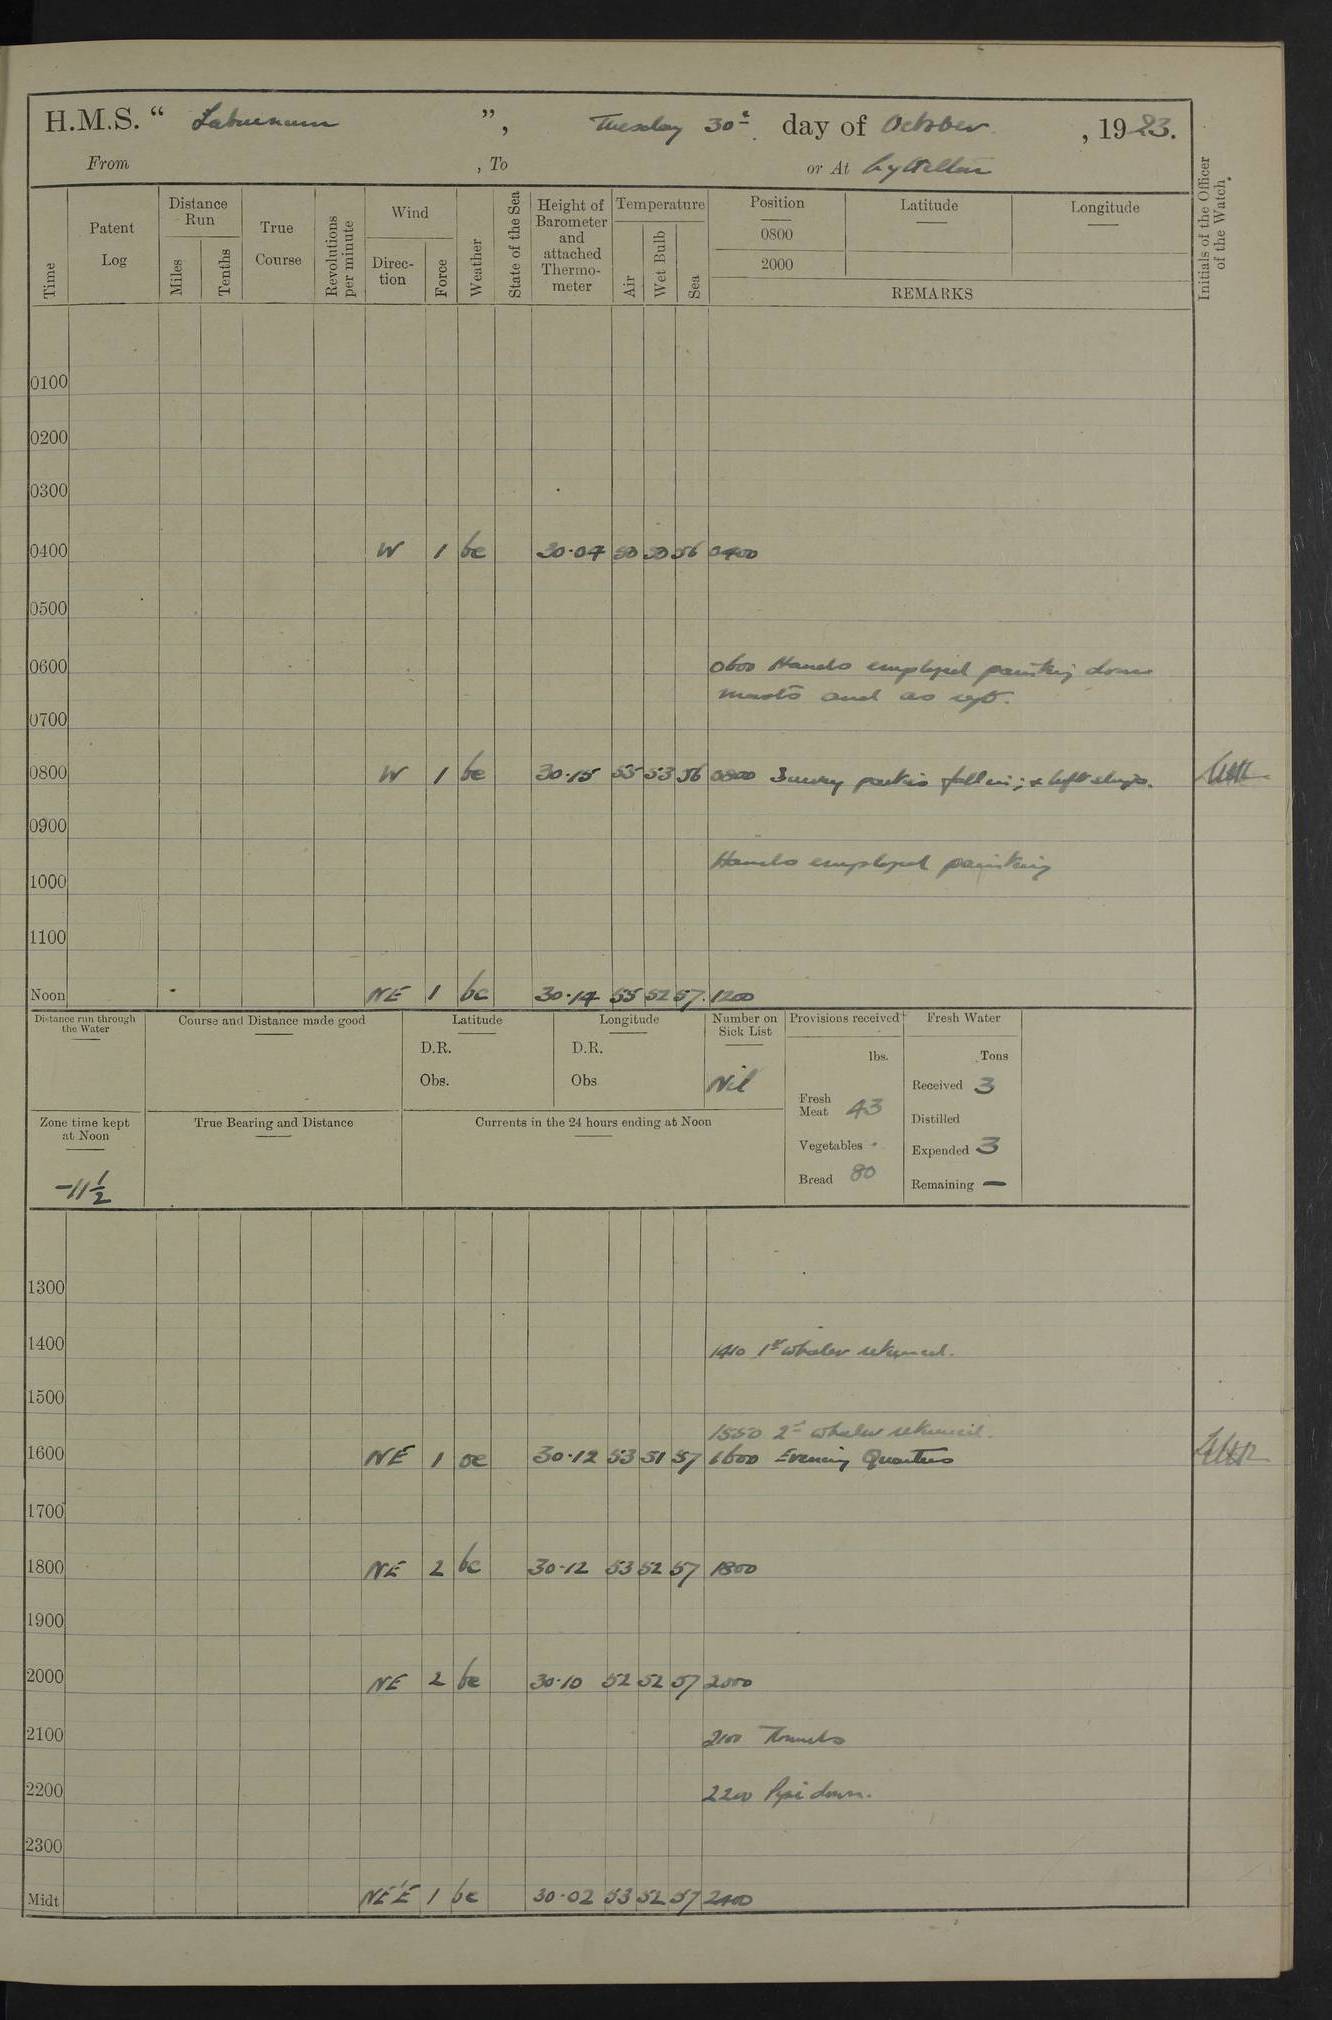 H.M.S. “ Laburnum ”, Tuesday 30th day of October, 1923.
From , To or At Lyttelton
Time Patent Log Distance Run Miles Tenths True Course Revolutions per minute Wind Direction Force Weather State of the Sea Height of Barometer and attached Thermometer Temperature Air Wet Bulb Sea Position 0800 2000 Latitude Longitude REMARKS Initials of the Officer of the Watch.
0100
0200
0300
0400 W 1 bc 30·07 50 50 56 0400
0500
0600 0600 Hands employed painting down
masts and as req.
0700
0800 W 1 bc 30·15 55 53 56 0800 Survey parties fell in; & left ship.
0900
Hands employed painting
1000
1100
Noon NE 1 bc 30·14 55 52 57 1200
Distance run through the Water Course and Distance made good Latitude Longitude Number on Sick List Provisions received Fresh Water
D.R. D.R. lbs. Tons
Obs. Obs Nil Received 3
Fresh Meat 43 Distilled
Zone time kept at Noon True Bearing and Distance Currents in the 24 hours ending at Noon
Vegetables - Expended 3
-11½ Bread 80 Remaining —
1300
1400 1410 1st whaler returned.
1500
1550 2nd whaler returned.
1600 NE 1 oc 30·12 53 51 57 1600 Evening Quarters
1700
1800 NE 2 bc 30·12 53 52 57 1800
1900
2000 NE 2 bc 30·10 52 52 57 2000
2100 2100 Rounds
2200 2200 Pipe down.
2300
Midt NE'E 1 bc 30·02 53 52 57 2400